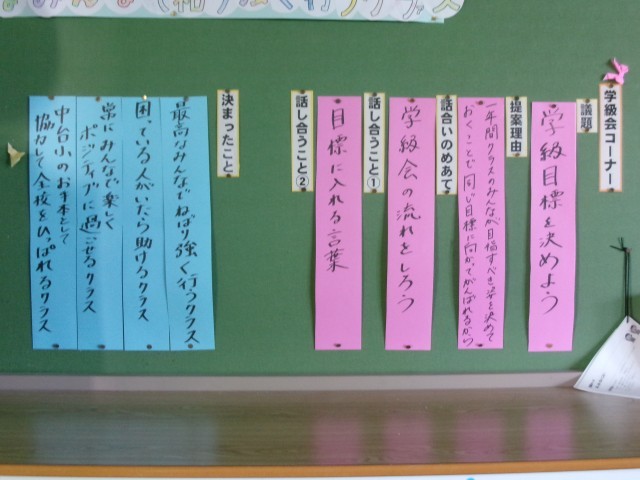 学級会コーナー
議題
学級目標を決めよう
提案理由
一年間クラスのみんなが目指すべき姿を決めて
おくことで同じ目標に向かってがんばれるから
話合いのめあて
学級会の流れをしろう
話し合うこと①
目標に入れる言葉
話し合うこと②
決まったこと
最高なみんなでねばり強く行うクラス
困っている人がいたら助けるクラス
常にみんなで楽しく
ポジティブに過ごせるクラス
中台小のお手本として
協力して全校をひっぱれるクラス